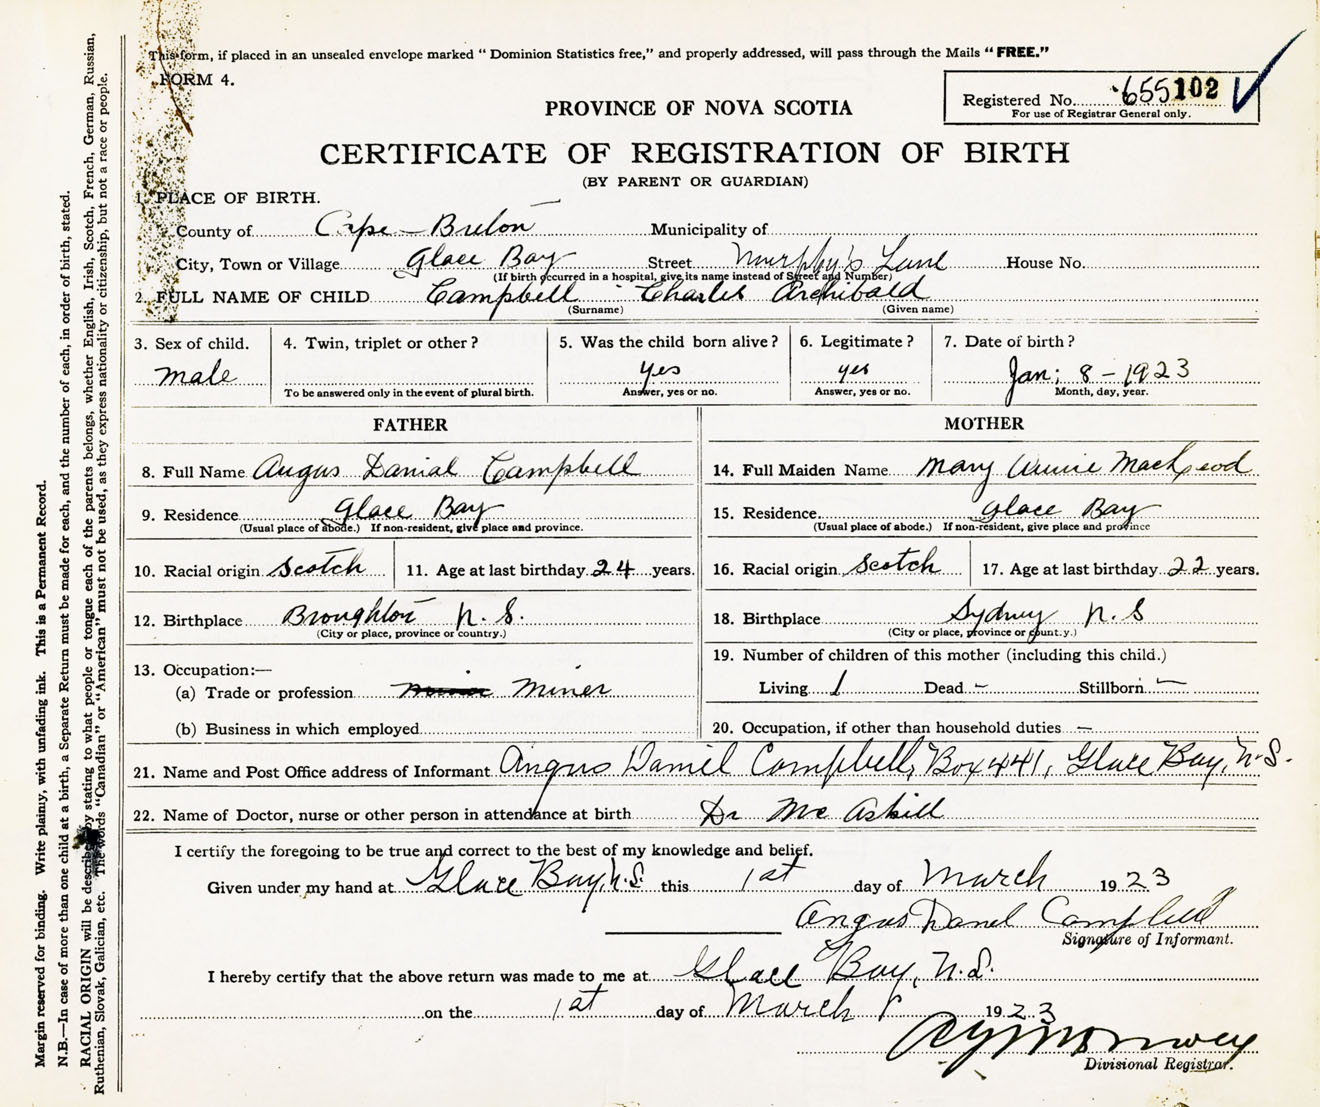 This form, if placed in an unsealed envelope marked " Dominion Statistics free," and properly addressed, will pass through the Mails " FREE."
FORM 4.
Registered No. 655102
For use of Registrar General only.
PROVINCE OF NOVA SCOTIA
CERTIFICATE OF REGISTRATION OF BIRTH
(BY PARENT OR GUARDIAN)
1. PLACE OF BIRTH.
County of Cape-Breton Municipality of
City, Town or Village Glace Bay Street Murphy's Lane House No.
(If birth occurred in a hospital, give its name instead of Street and Number)
2. FULL NAME OF CHILD Campbell Charles Archibald
(Surname) (Given name)
3. Sex of child. 4. Twin, triplet or other? 5. Was the child born alive? 6. Legitimate? 7. Date of birth?
male yes yes Jan; 8-1923
To be answered only in the event of plural birth. Answer, yes or no. Answer, yes or no. Month, day, year.
FATHER MOTHER
8. Full Name Angus Danial Campbell 14. Full Maiden Name Mary Annie MacLeod
9. Residence Glace Bay 15. Residence Glace Bay
(Usual place of abode.) If non-resident, give place and province. (Usual place of abode.) If non-resident, give place and province
10. Racial origin Scotch 11. Age at last birthday 24 years. 16. Racial origin Scotch 17. Age at last birthday 22 years.
12. Birthplace Broughton N.S. 18. Birthplace Sydney N.S
(City or place, province or country.) (City or place, province or count.y.)
13. Occupation:— 19. Number of children of this mother (including this child.)
(a) Trade or profession Miner Living 1 Dead - Stillborn -
(b) Business in which employed 20. Occupation, if other than household duties —
21. Name and Post Office address of Informant Angus Daniel Campbell, Box 441, Glace Bay, N.S.
22. Name of Doctor, nurse or other person in attendance at birth Dr McAskill
I certify the foregoing to be true and correct to the best of my knowledge and belief.
Given under my hand at Glace Bay, N.S. this 1st day of March 1923
Angus Danel Campbell
Signature of Informant.
I hereby certify that the above return was made to me at Glace Bay, N.S.
on the 1st day of March 1923
Divisional Registrar.
Margin reserved for binding. Write plainly, with unfading ink. This is a Permanent Record.
N.B.—In case of more than one child at a birth, a Separate Return must be made for each, and the number of each, in order of birth, stated.
RACIAL ORIGIN will be described by stating to what people or tongue each of the parents belongs, whether English, Irish, Scotch, French, German, Russian,
Ruthenian, Slovak, Galician, etc. The words "Canadian" or "American" must not be used, as they express nationality or citizenship, but not a race or people.